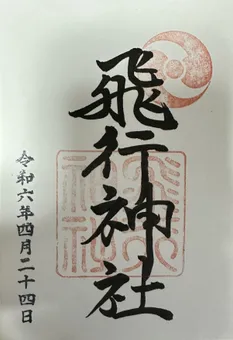 飛行神社
令和六年四月二十四日